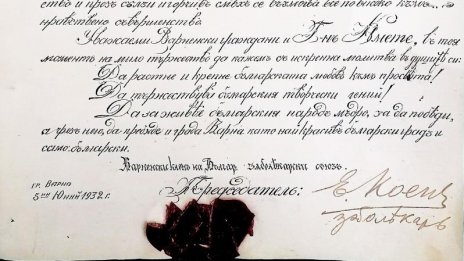 ство и през сълзи и горчив смях се възмогва все по високо към
нравствено съвършенство.
Уважаеми Варненски граждани и Г-не Кмете, в тоя
моментъ на мило тържество да кажемъ съ искрена молитва въ душите си:
Да расте и крепне българската любовь къмъ просвета!
Да тържествува българския творчески гений!
Да заживѣе българския народъ мѣдро, за да победи,
а чрезъ него, да пребѫде и града Варна като най красивъ български градъ и
само български.
Варненски клонъ на Бълг. зъболѣкарски союзъ.
гр. Варна
5 юний 1932 г.
Председатель:
Е. Коенъ
зъболѣкаръ